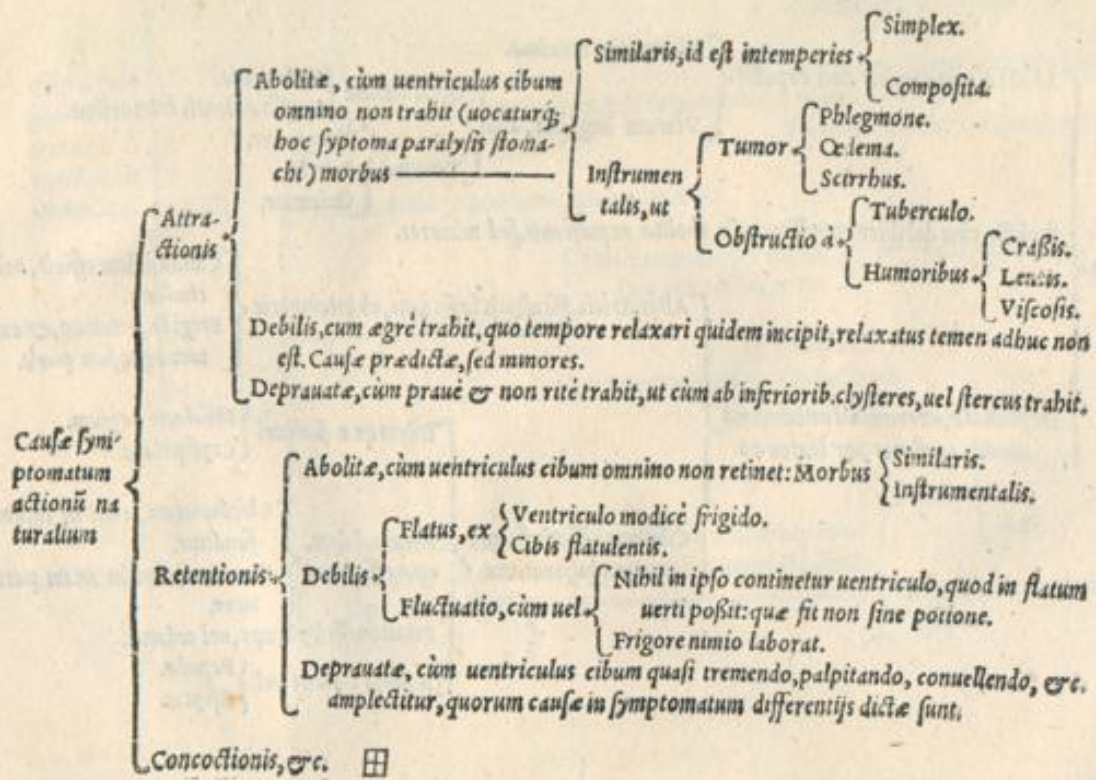 Simplex.
Similaris, id est intemperies
Composita.
Abolitæ, cùm uentriculus cibum
omnino non trahit (uocaturq;
hoc syptoma paralysis stoma-
chi) morbus
Phlegmone.
Tumor
Œdema.
Scirrhus.
Instrumen
talis, ut
Tuberculo.
Obstructio à
Humoribus
Craßis.
Lentis.
Viscosis.
Attra-
ctionis
Debilis, cum ægrè trahit, quo tempore relaxari quidem incipit, relaxatus temen adhuc non
est. Causæ prædictæ, sed minores.
Deprauatæ, cùm prauè & non ritè trahit, ut cùm ab inferiorib. clysteres, uel stercus trahit.
Causæ sym-
ptomatum
actionũ na
turalium
Abolitæ, cùm uentriculus cibum omnino non retinet: Morbus
Similaris.
Instrumentalis.
Retentionis
Debilis
Flatus, ex
Ventriculo modicè frigido.
Cibis flatulentis.
Fluctuatio, cùm uel
Nihil in ipso continetur uentriculo, quod in flatum
uerti poßit: quæ fit non sine potione.
Frigore nimio laborat.
Deprauatæ, cùm uentriculus cibum quasi tremendo, palpitando, conuellendo, &c.
amplectitur, quorum causæ in symptomatum differentijs dictæ sunt.
Concoctionis, &c.